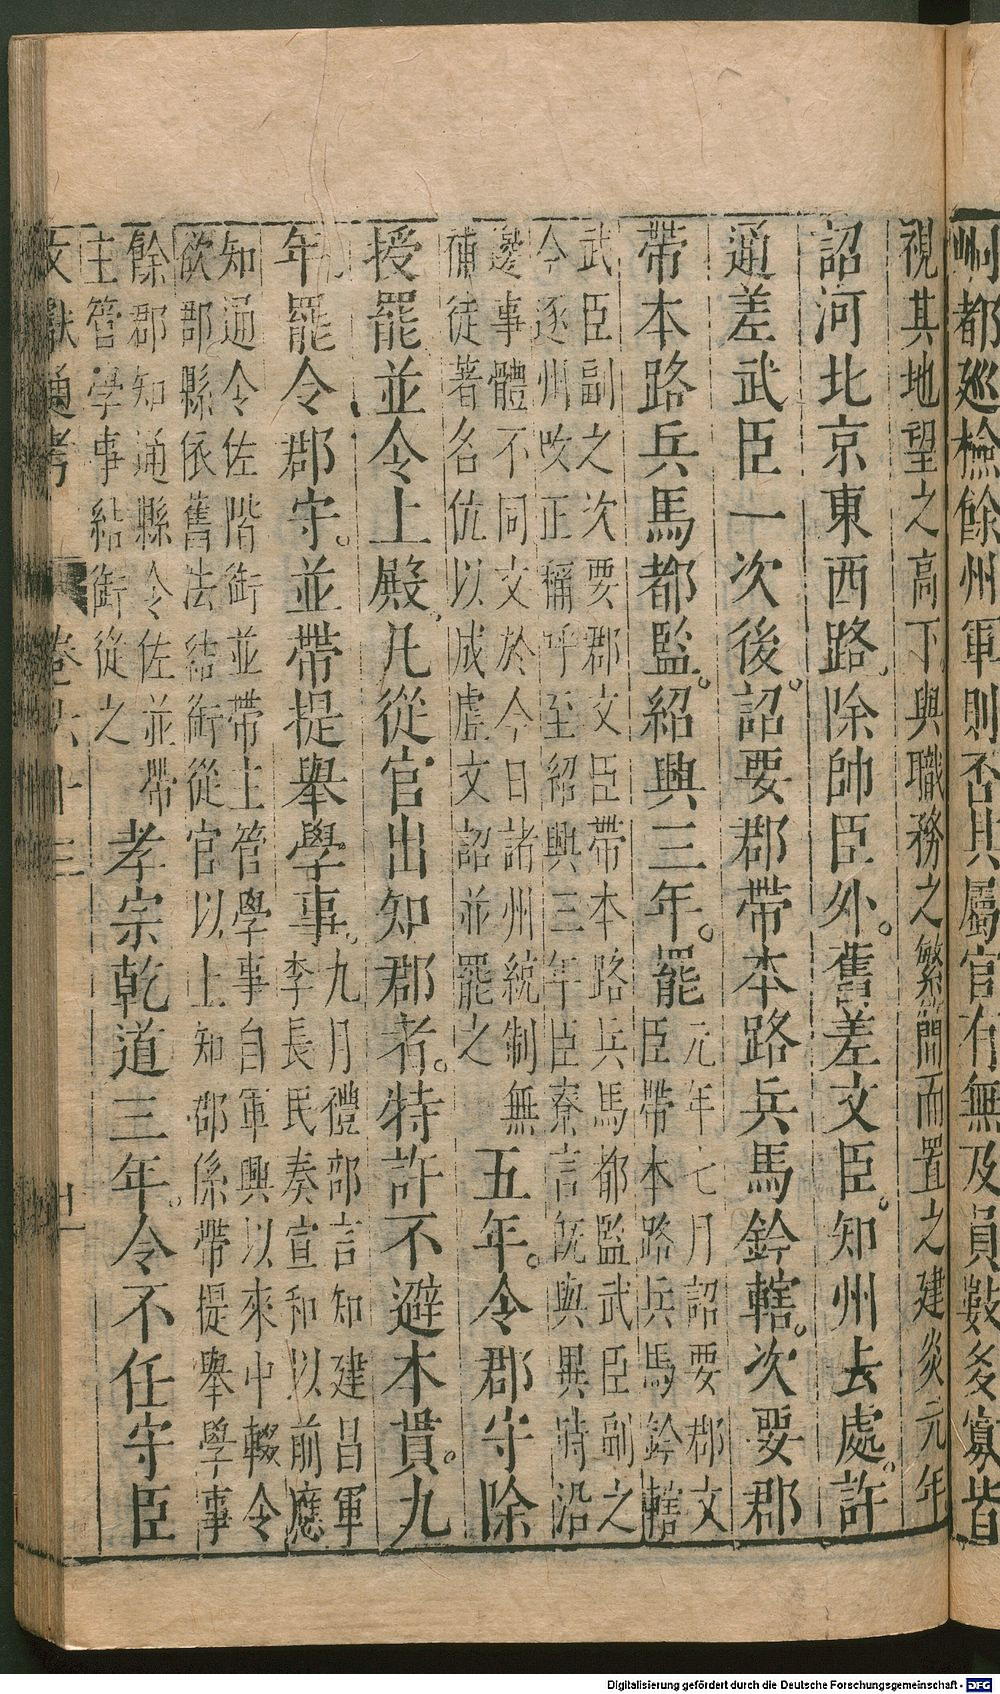 峒都廵檢餘州軍則否其屬官有無及員數多寡皆
視其地望之高下與職務之繁簡而置之建炎元年
詔河北京東西路除帥臣外舊差文臣知州去處許
通差武臣一次後詔要郡帶本路兵馬鈐轄次要郡
帶本路兵馬都監紹興三年罷
元年七月詔要郡文
臣帶本路兵馬鈐轄
武臣副之次要郡文臣帶本路兵馬都監武臣副之
今逐州改正稱呼至紹興三年臣寮言旣與異時沿
邊事體不同文於今日諸州統制無
補徒著名位以成虛文詔並罷之
五年令郡守除
授罷並令上殿凡從官出知郡者特許不避本貫九
年罷令郡守並帶提舉學事
九月禮部言知建昌軍
李長民奏宣和以前應
知通令佐階銜並帶主管學事自軍興以來中輟令
欲郡縣依舊法結銜從官以上知郡係帶提舉學事
餘郡知通縣令佐並帶
主管學事結銜從之
孝宗乾道三年令不任守臣
文獻通考 卷六十三 廿一
Digitalisierung gefördert durch die Deutsche Forschungsgemeinschaft - DFG